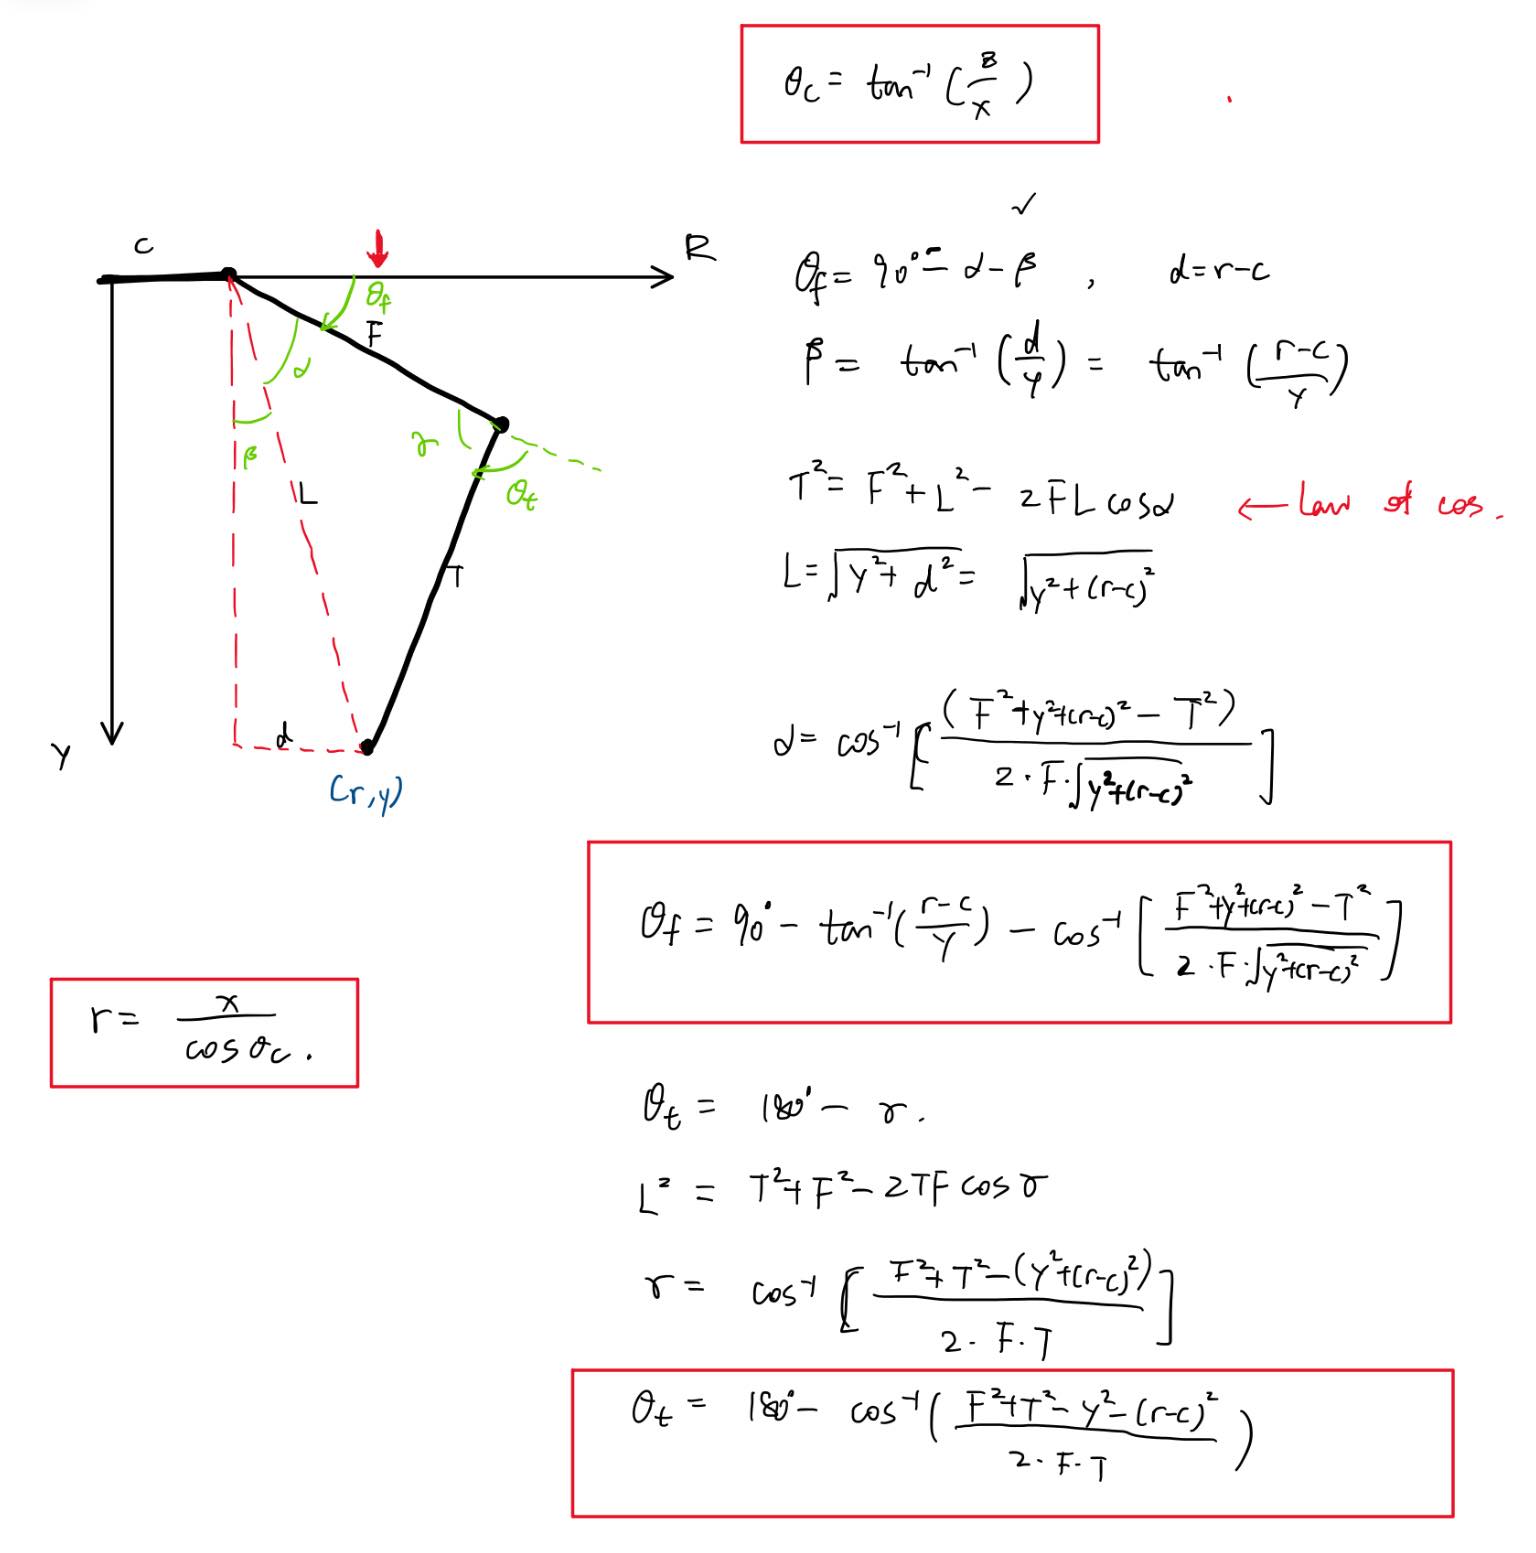 θc = tan⁻¹ (z/x)
C
R
θf
F
α
γ
β
θt
L
T
d
Y
(r,y)
θf = 90° - α - β , d = r-c
β = tan⁻¹ (d/y) = tan⁻¹ (r-c/y)
T² = F² + L² - 2FL cosα ← Law of cos.
L = √(y² + d²) = √(y² + (r-c)²)
α = cos⁻¹ [(F² + y² + (r-c)² - T²) / 2·F·√(y²+(r-c)²)]
θf = 90° - tan⁻¹(r-c/y) - cos⁻¹ [F² + y² + (r-c)² - T² / 2·F·√(y²+(r-c)²)]
r = x / cos θc.
θt = 180° - γ.
L² = T² + F² - 2TF cos γ
γ = cos⁻¹ [F² + T² - (y² + (r-c)²) / 2·F·T]
θt = 180° - cos⁻¹ (F² + T² - y² - (r-c)² / 2·F·T)